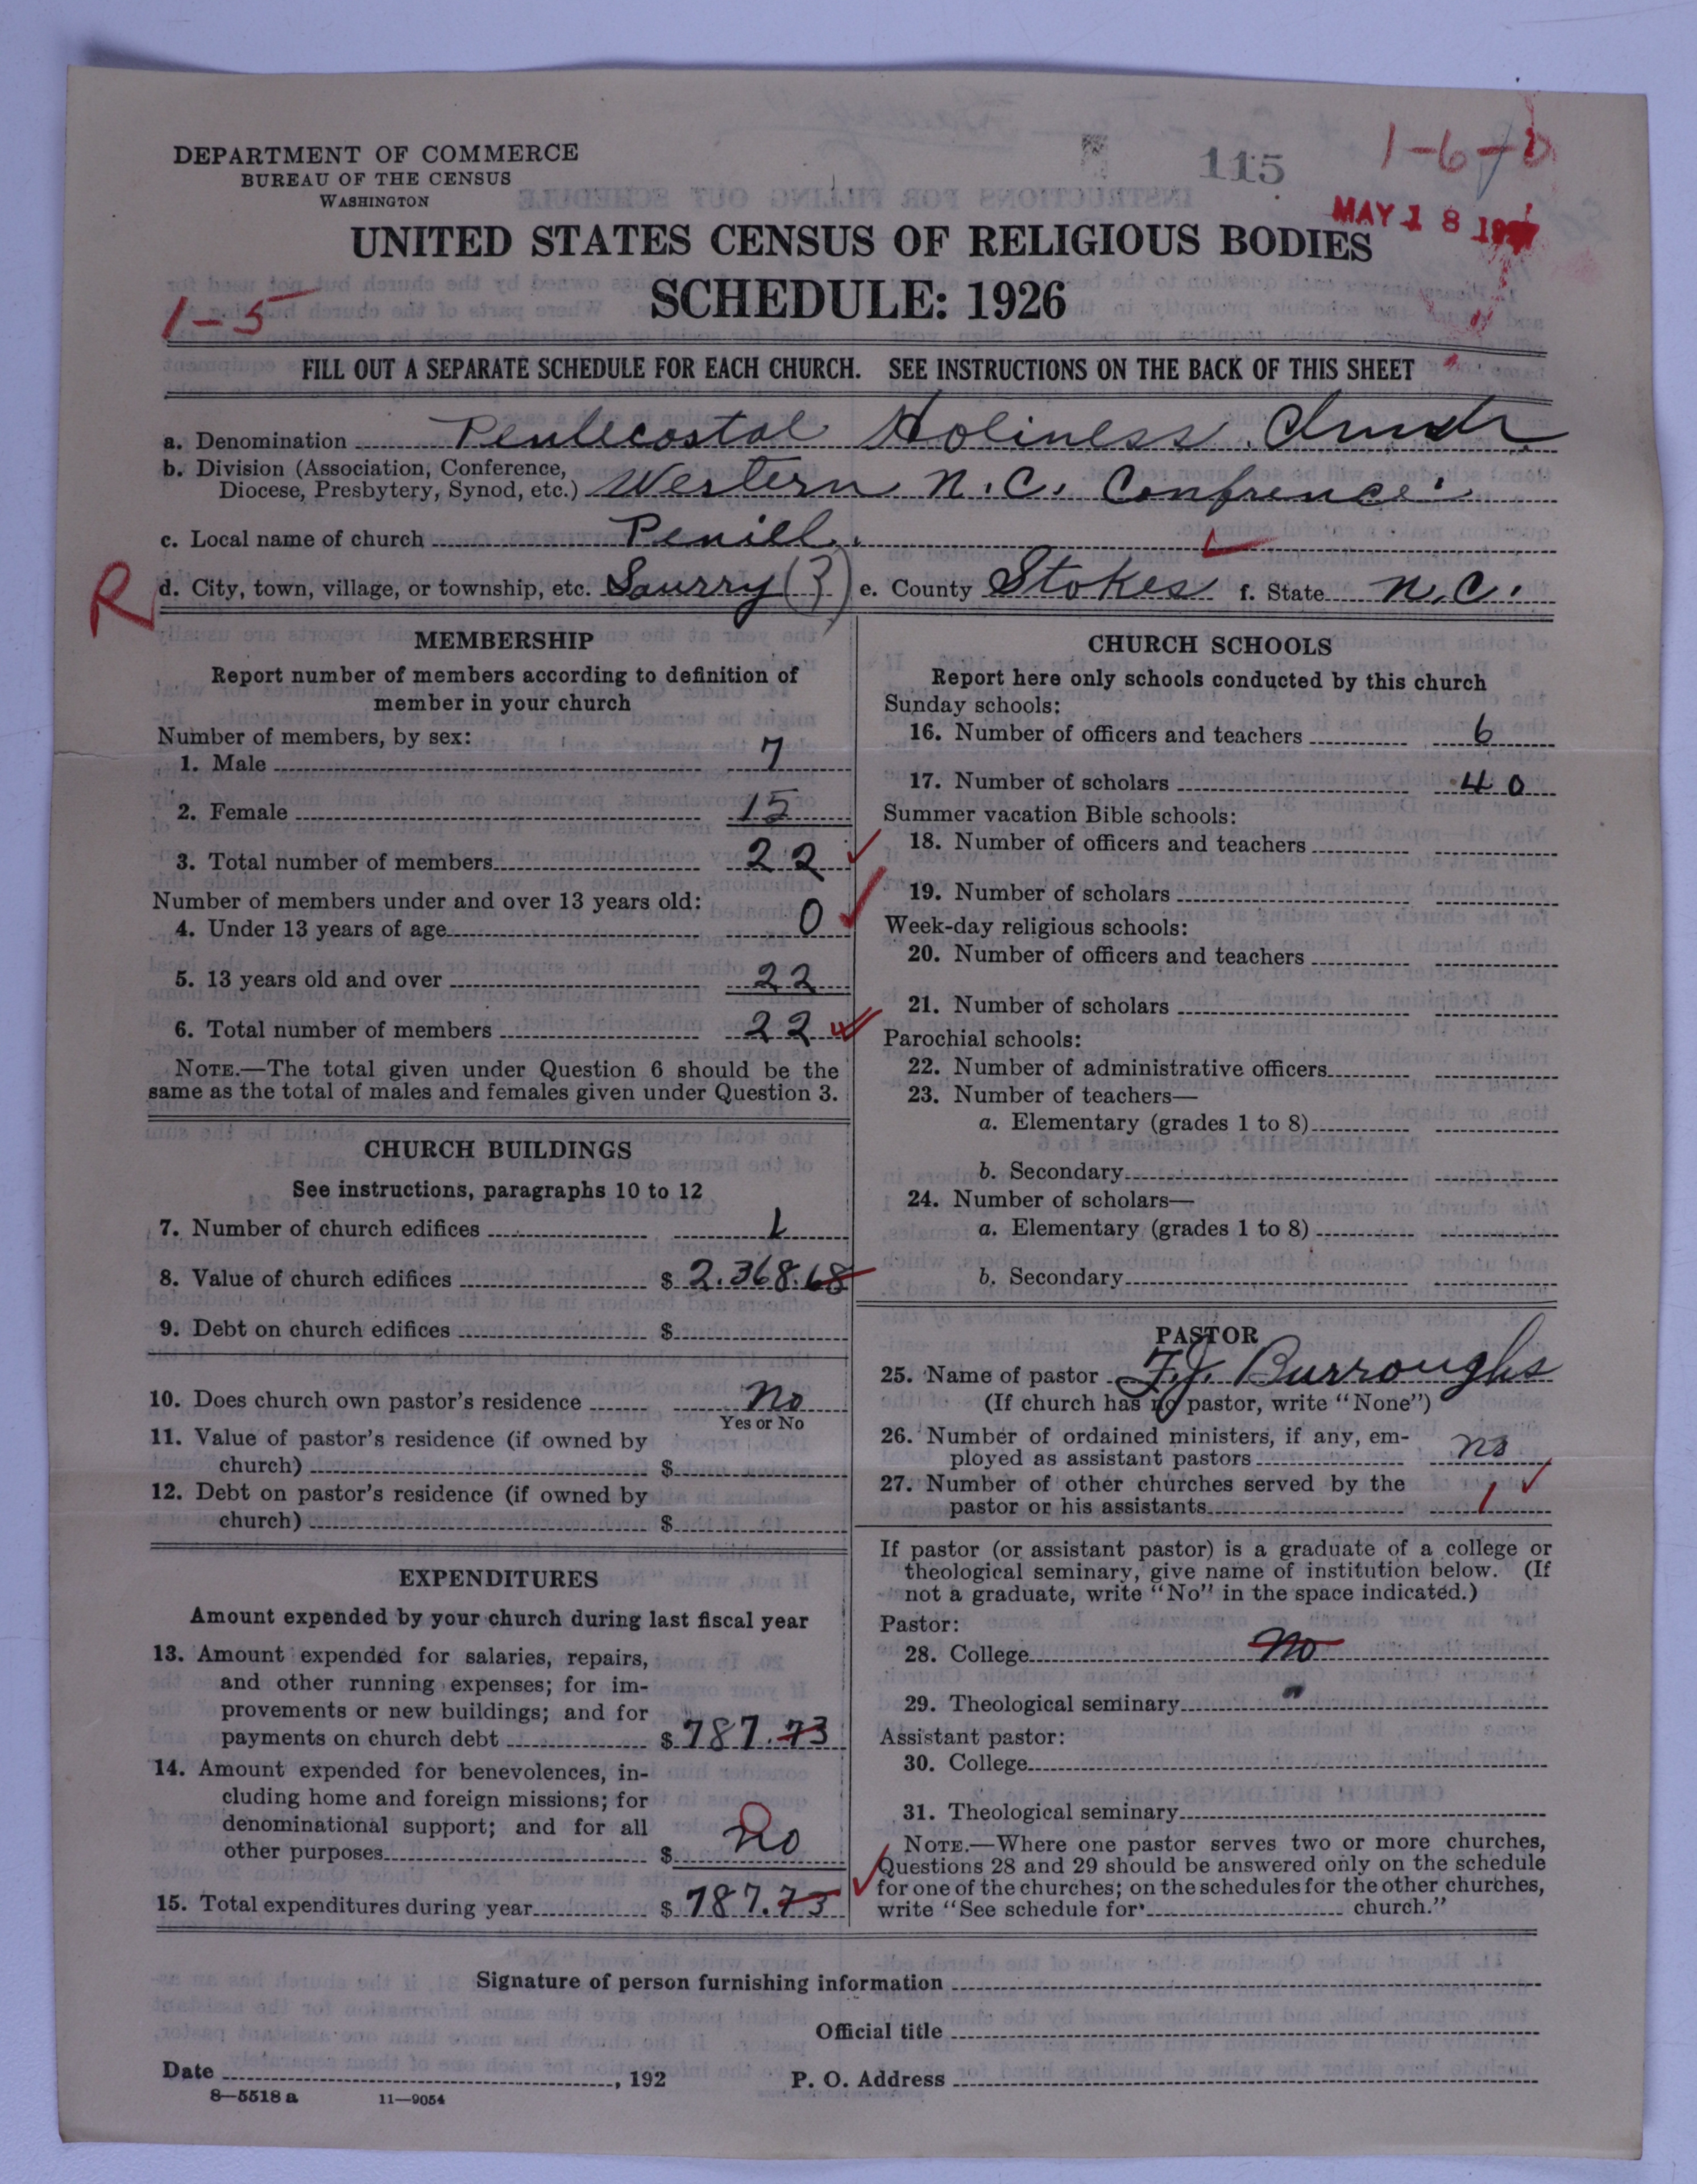 DEPARTMENT OF COMMERCE
BUREAU OF THE CENSUS
WASHINGTON
115
1-6-0
MAY 18 192
UNITED STATES CENSUS OF RELIGIOUS BODIES
SCHEDULE: 1926
1-5
FILL OUT A SEPARATE SCHEDULE FOR EACH CHURCH. SEE INSTRUCTIONS ON THE BACK OF THIS SHEET
a. Denomination Pentecostal Holiness Church
b. Division (Association, Conference,
Diocese, Presbytery, Synod, etc.) Western N.C. Confrence.
c. Local name of church Peniel.
R d. City, town, village, or township, etc. Saurry (?) e. County Stokes f. State N.C.
MEMBERSHIP
Report number of members according to definition of
member in your church
Number of members, by sex:
1. Male 7
2. Female 15
3. Total number of members 22
Number of members under and over 13 years old:
4. Under 13 years of age 0
5. 13 years old and over 22
6. Total number of members 22
NOTE.—The total given under Question 6 should be the
same as the total of males and females given under Question 3.
CHURCH BUILDINGS
See instructions, paragraphs 10 to 12
7. Number of church edifices 1
8. Value of church edifices $ 2.368.68
9. Debt on church edifices $
10. Does church own pastor's residence no
Yes or No
11. Value of pastor's residence (if owned by
church) $
12. Debt on pastor's residence (if owned by
church) $
EXPENDITURES
Amount expended by your church during last fiscal year
13. Amount expended for salaries, repairs,
and other running expenses; for im-
provements or new buildings; and for
payments on church debt $ 787.73
14. Amount expended for benevolences, in-
cluding home and foreign missions; for
denominational support; and for all
other purposes $ no
15. Total expenditures during year $ 787.73
CHURCH SCHOOLS
Report here only schools conducted by this church
Sunday schools:
16. Number of officers and teachers 6
17. Number of scholars 40
Summer vacation Bible schools:
18. Number of officers and teachers
19. Number of scholars
Week-day religious schools:
20. Number of officers and teachers
21. Number of scholars
Parochial schools:
22. Number of administrative officers
23. Number of teachers—
a. Elementary (grades 1 to 8)
b. Secondary
24. Number of scholars—
a. Elementary (grades 1 to 8)
b. Secondary
PASTOR
25. Name of pastor F.J. Burroughs
(If church has no pastor, write "None")
26. Number of ordained ministers, if any, em-
ployed as assistant pastors no
27. Number of other churches served by the
pastor or his assistants 1
If pastor (or assistant pastor) is a graduate of a college or
theological seminary, give name of institution below. (If
not a graduate, write "No" in the space indicated.)
Pastor:
28. College no
29. Theological seminary "
Assistant pastor:
30. College
31. Theological seminary
NOTE.—Where one pastor serves two or more churches,
Questions 28 and 29 should be answered only on the schedule
for one of the churches; on the schedules for the other churches,
write "See schedule for church."
Signature of person furnishing information
Official title
Date , 192 P. O. Address
8—5518 a 11—9054